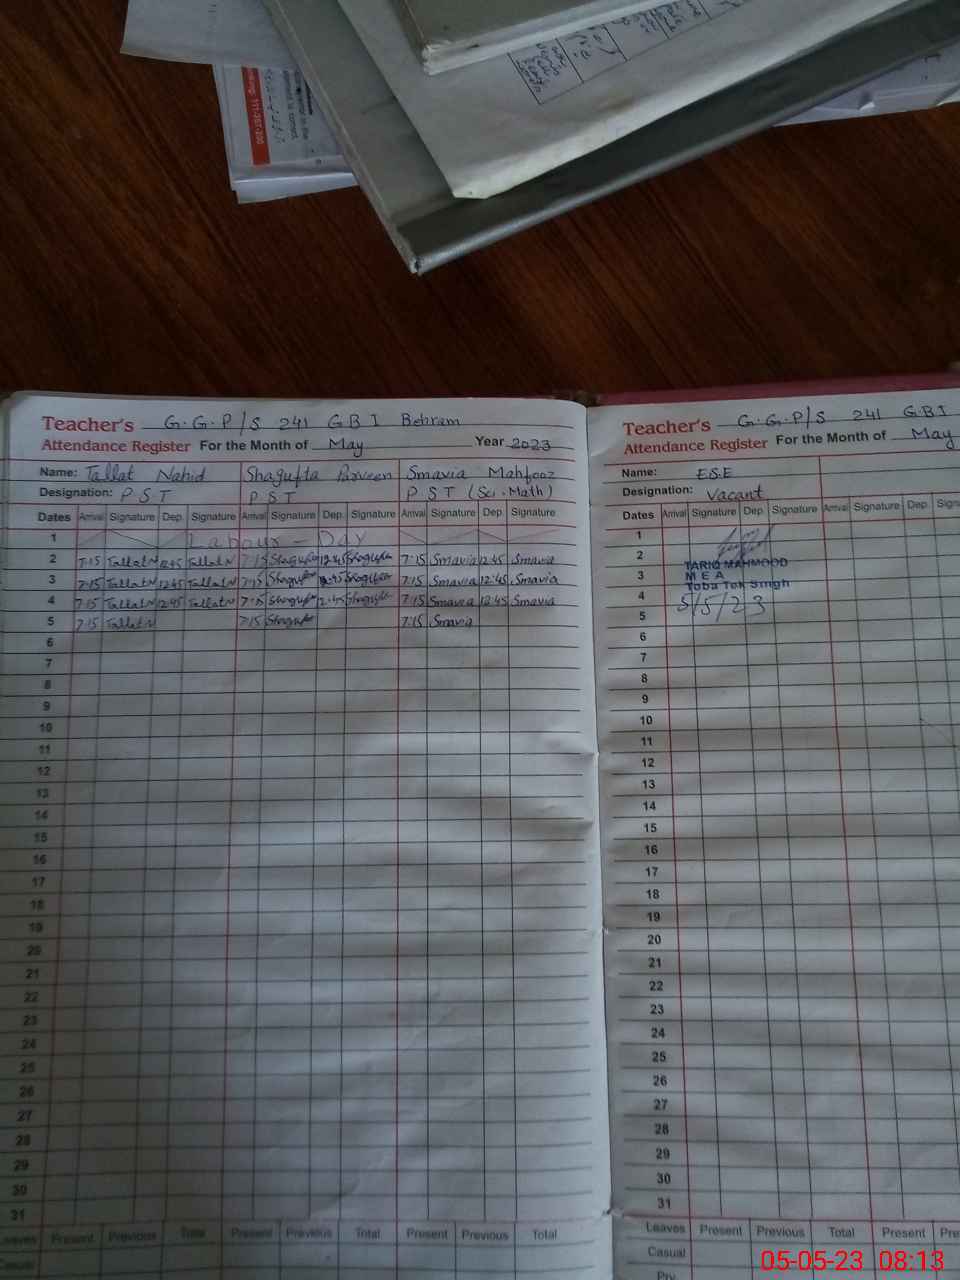 Teacher's G.G.P/S 241 GBI Behram
Attendance Register For the Month of May Year 2023
Name: Tallat Nahid Shagufta Parveen Smavia Mahfooz
Designation: P S T P S T P S T (Sci. Math)
Dates Arrival Signature Dep. Signature Arrival Signature Dep. Signature Arrival Signature Dep. Signature
1 Labour - Day
2 7:15 Tallat N 12:45 Tallat N 7:15 Shagufta 12:45 Shagufta 7:15 Smavia 12:45 Smavia
3 7:15 Tallat N 12:45 Tallat N 7:15 Shagufta 12:45 Shagufta 7:15 Smavia 12:45 Smavia
4 7:15 Tallat N 12:45 Tallat N 7:15 Shagufta 12:45 Shagufta 7:15 Smavia 12:45 Smavia
5 7:15 Tallat N 7:15 Shagufta 7:15 Smavia
6
7
8
9
10
11
12
13
14
15
16
17
18
19
20
21
22
23
24
25
26
27
28
29
30
31
Leaves Present Previous Total Present Previous Total Present Previous Total
Casual
Teacher's G.G.P/S 241 GBI
Attendance Register For the Month of May
Name: E.S.E
Designation: Vacant
Dates Arrival Signature Dep. Signature Arrival Signature Dep.
1
2
TARIQ MAHMOOD
3 M E A
Toba Tek Singh
4 5/5/23
5
6
7
8
9
10
11
12
13
14
15
16
17
18
19
20
21
22
23
24
25
26
27
28
29
30
31
Leaves Present Previous Total Present
Casual
05-05-23 08:13